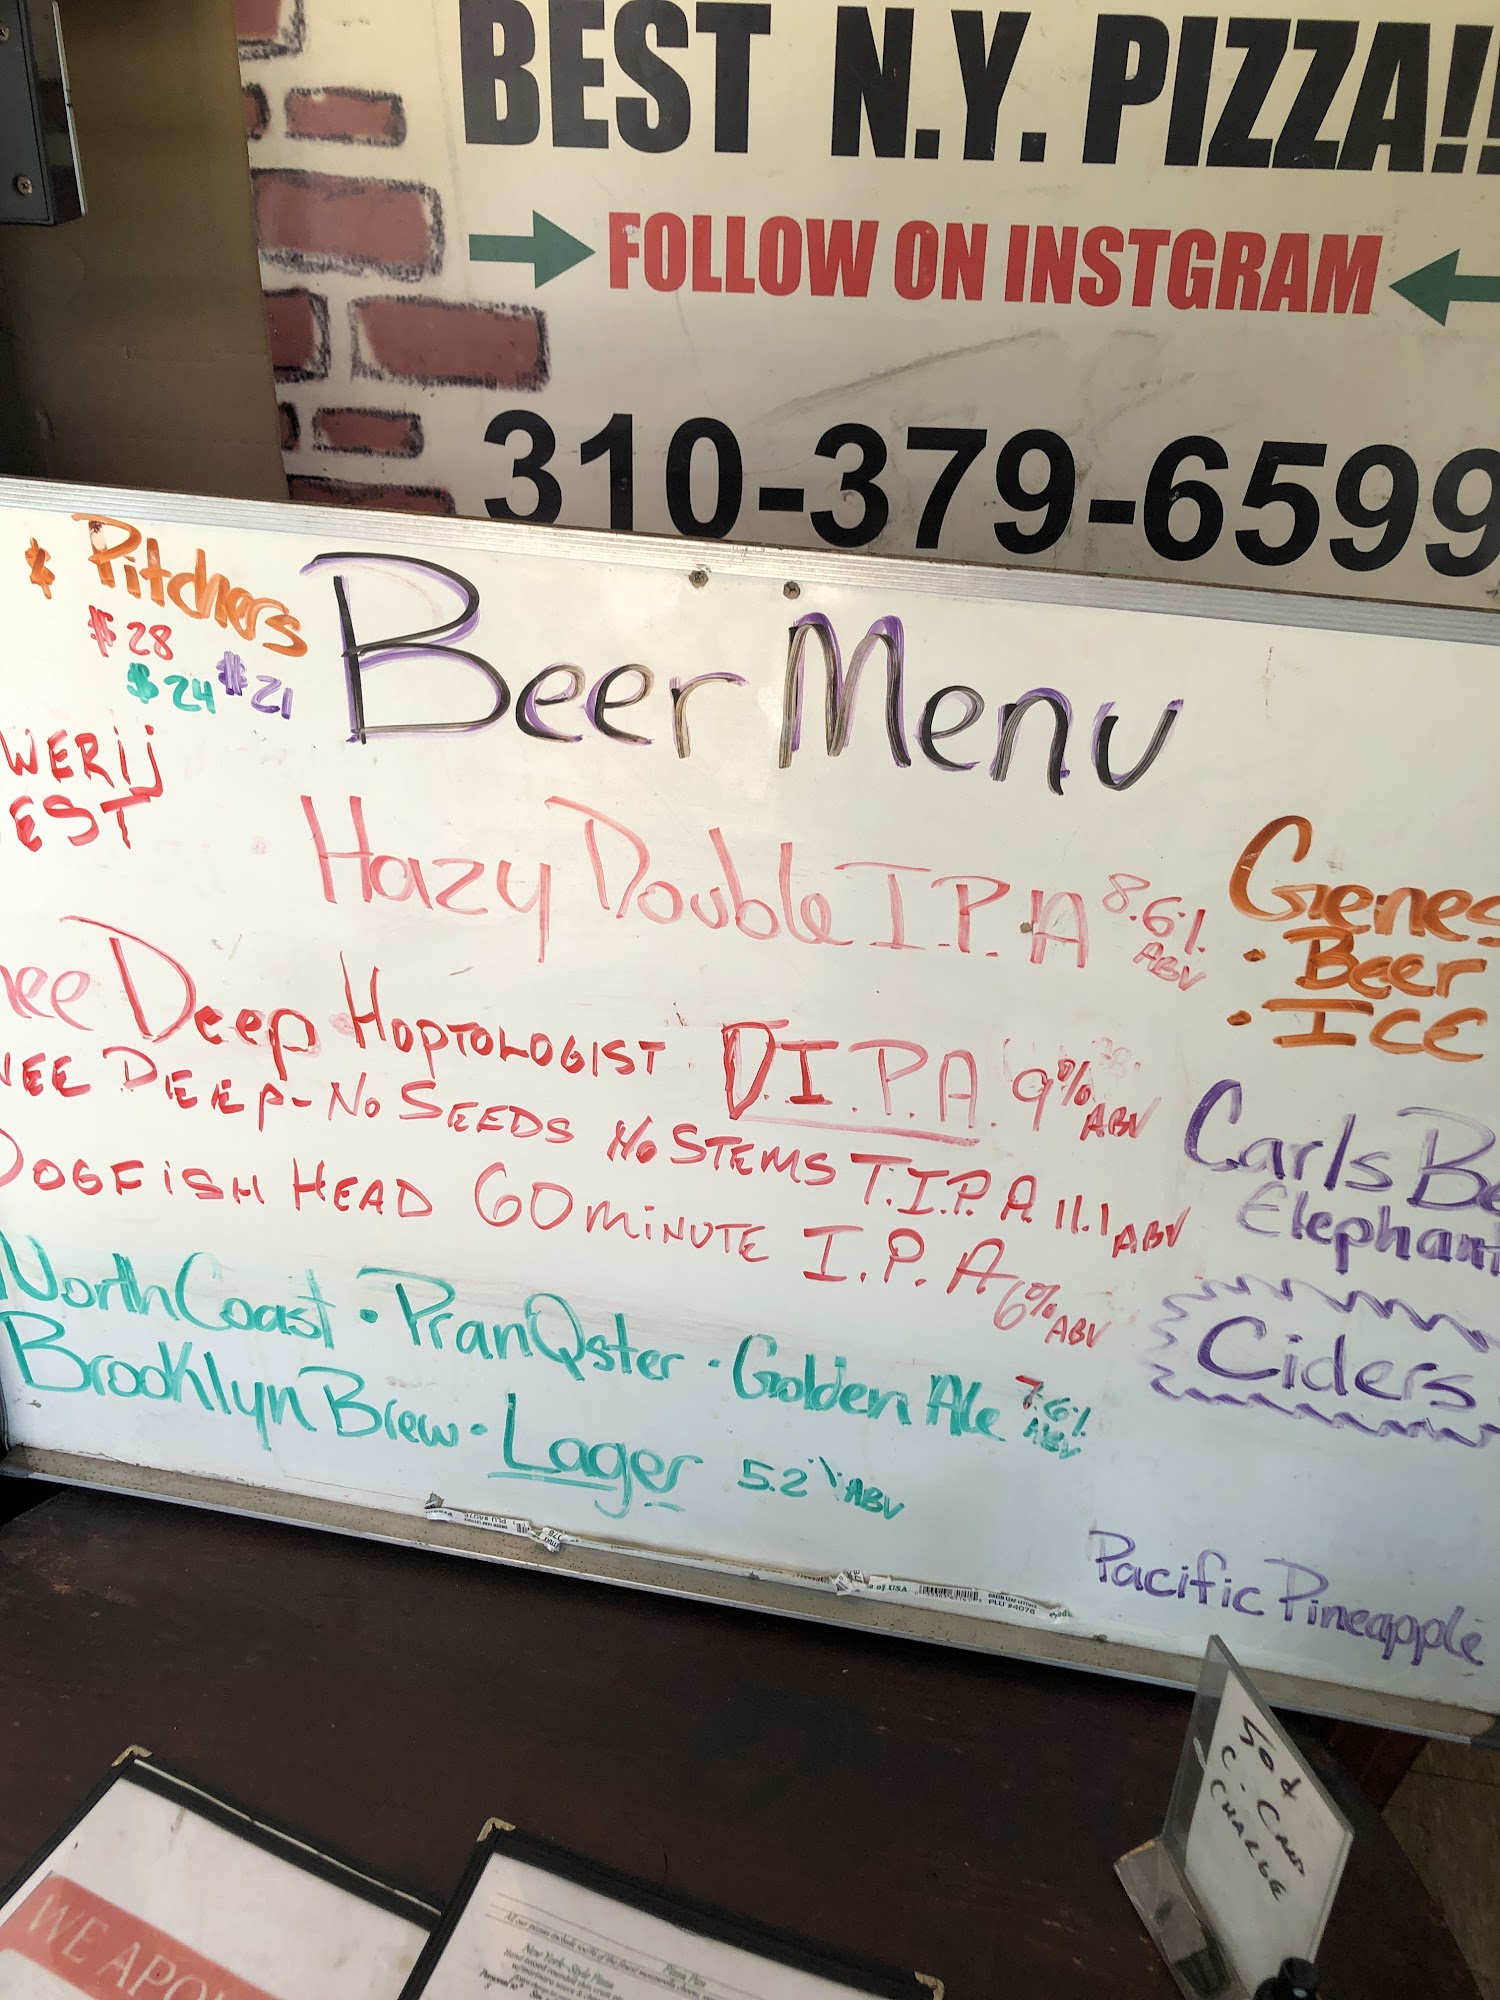 BEST N.Y. PIZZA!!
FOLLOW ON INSTGRAM
310-379-6599
& Pitchers
$28
$24 $21
Beer Menu
WERij
EST
Hazy Double I.P.A 8.6% ABV
nee Deep Hoptologist D.I.P.A. 9% ABV
NEE DEEP-No SEEDS No STEMS T.I.P.A. 11.1 ABV
DOGFiSH HEAD 60 MiNUTE I.P.A 6% ABV
North Coast · PranQster · Golden Ale 7.6% ABV
Brooklyn Brew · Lager 5.2% ABV
Genes
· Beer
· ICE
Carls Be
Elephant
Ciders
Pacific Pineapple
PLU #4076
of USA
PLU #4076
50¢
C. CARD
CHARGE
WE APO
New York-Style Pizza